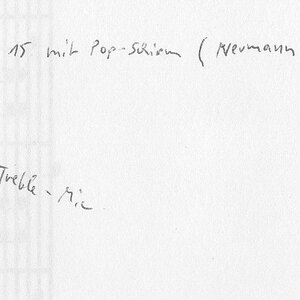 15 mit Pop-Schirm ( Neumann
Treble - Mic